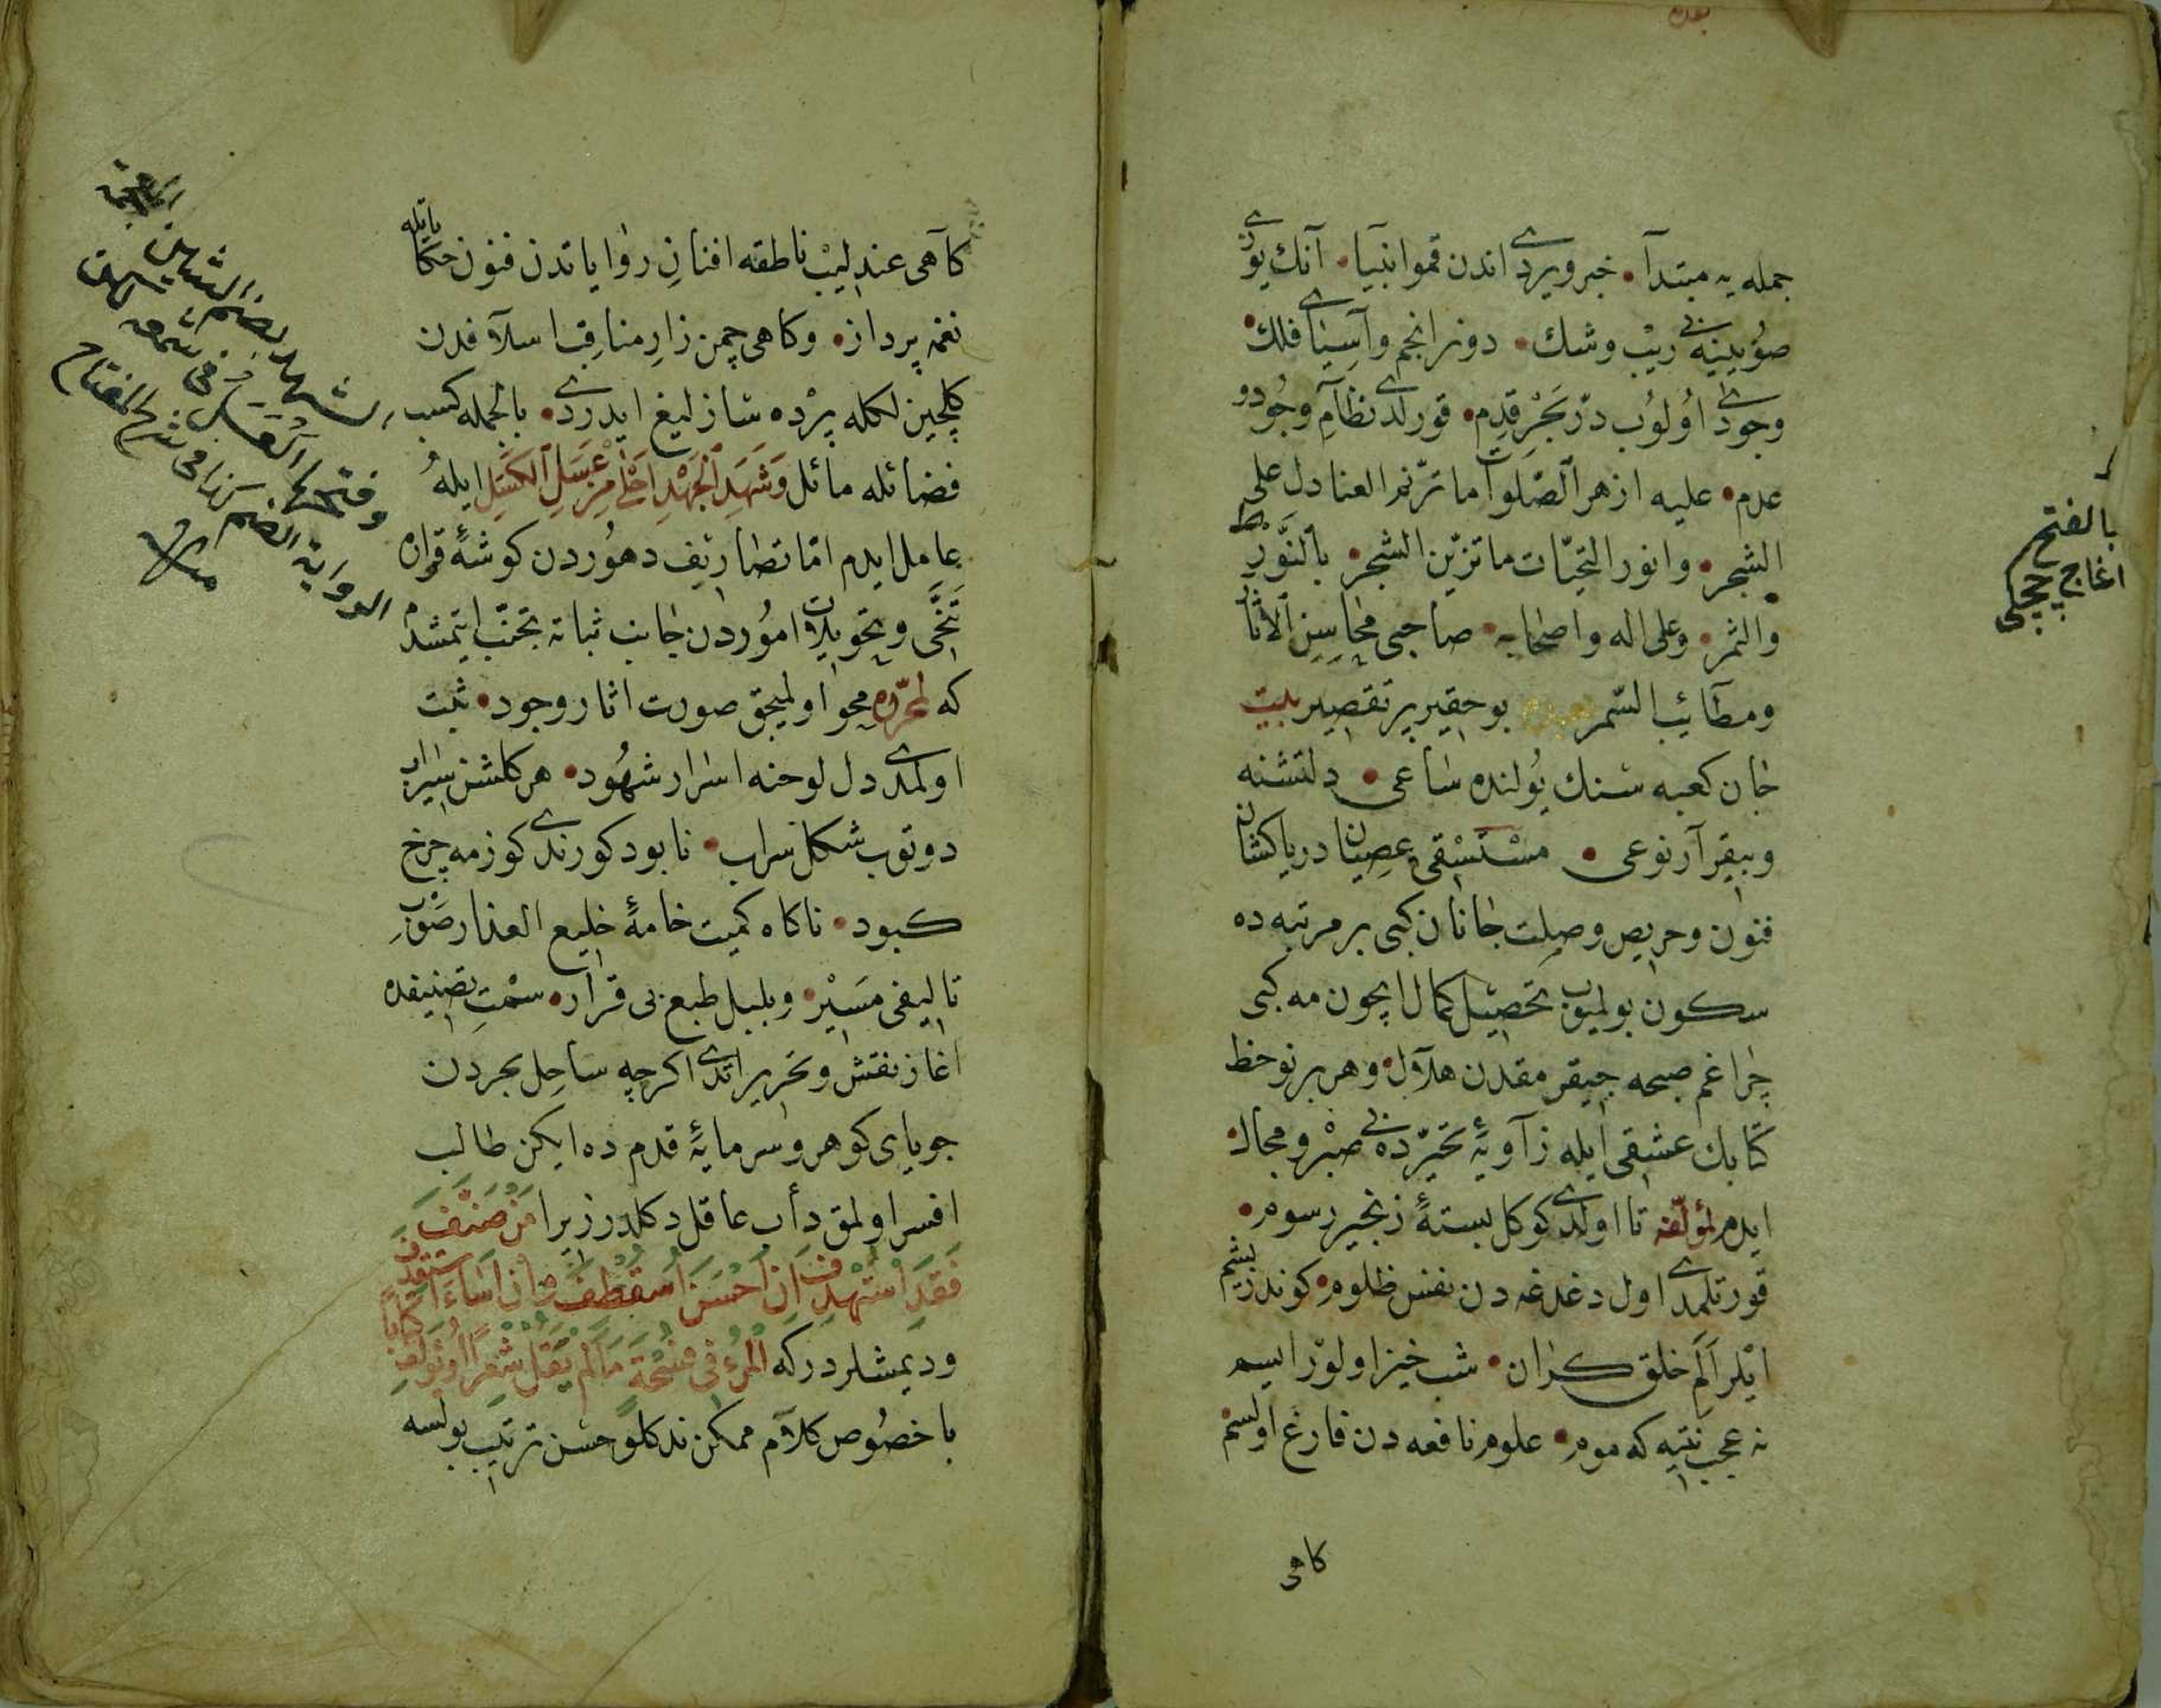 جمله يه مبتدآ • خبر ويردى اندن قمو انبيا • آنك يوزى
صوُيينه بى ريْب وشك • دونر انجم وآسِياى فلك •
وجودى اوُلوُب دُرّ بَحْرِ قدِم • قورلدى نظآمِ وجُود و
عدم • عليه ازهر الصّلوات ما ترّنم العنادل على
الشجر • وانور التحيّات ما تزيّن الشجر • بالنَّوْر
والثمر • وعلى اله واصحابه • صاحبى محَاسِنِ الاثار
ومطآئب السّمر بو حقير پر تقصير بيت
جان كعبه سنك يُولنده ساعى • دلتشنه
وبيقرآر نوعى • مسْتسْقئ عِصيان درياكشان
فنون وحريص وصلت جانان كبى بر مرتبه ده
سكون بولميوب تحصيل كمال ايچون مه كبى
چراغم صبحه چيقر مقدن هلآل • وهر بر نو خط
كتابك عشقى ايله زآويۀ تحيّرده بى صبْر ومجال •
ايدم لمؤلّفه تا اولدى كوكل بستۀ زنجير رسوم •
قورتلمدى اول دغدغه دن نفس ظلوم • كوندزيشم
ايْلر اَلَمِ خلق كران • شب خيز اولور ايسم
نه عجب نتيه كه موم • علوم نافعه دن فارغ اولسم
كاهى
بالفتح
اغاج چچكى
كآهى عندليْب ناطقه افنانِ روايا تدن فنون حكاياتله
نغمه پرداز • وكاهى چمن زارِ مناقب اسلآفدن
كلچين لكله پرْده سازليغ ايدردى • بالجمله كسب
فضائله مائل وَشَهَدِ اَلْجَهْدِ اَحْلٰى مِنْ عَسَلِ الكَسَلِ ايله
عامل ايدم امّا تصاريف دهوُردن كوشۀ قراره
تَنَحّى وتحويلات اموُردن جانب ثباته تجنّب ايتمشدم
كه لمحرّره محو اولميجق صورت اثار وجود • ثبت
اولمدى دل لوحنه اسرار شهُود • هر كلشن سيراب
دوتوب شكل سراب • نابود كورندى كوزمه چرخ
كبود • ناكاه كميت خامۀ خليع العذار صَوْبِ
تاليفى مسَيْر • وبلبل طبع بى قرار • سمْتِ تصنيفده
اغاز نقش وتحرير اتدى اكرچه ساحِل بحردن
جوياى كوهر وسرمايۀ قدم ده ايكن طالب
افسر اولمق دأب عاقل دكلدر زيرا مَنْ صَنّفَ
فَقَدِ اسْتَهْدَفَ اِنْ اَحْسَنَ اسْتَعْطَفَ وَاِنْ اَسَاءَ اسْتَقْذَفَ
وديمشلردركه المرْءُ فى فسْحَةٍ مَا لَمْ يَقُلْ شِعْرًا اَوْ يُوَلِّفْ كتابا
باخصُوص كلآم ممكن ندكلو حسن ترتيب بولسه
الشهد بضم الشين
وفتحها العسل فى شمعه
الرواية الضم فى شرح المفتاح